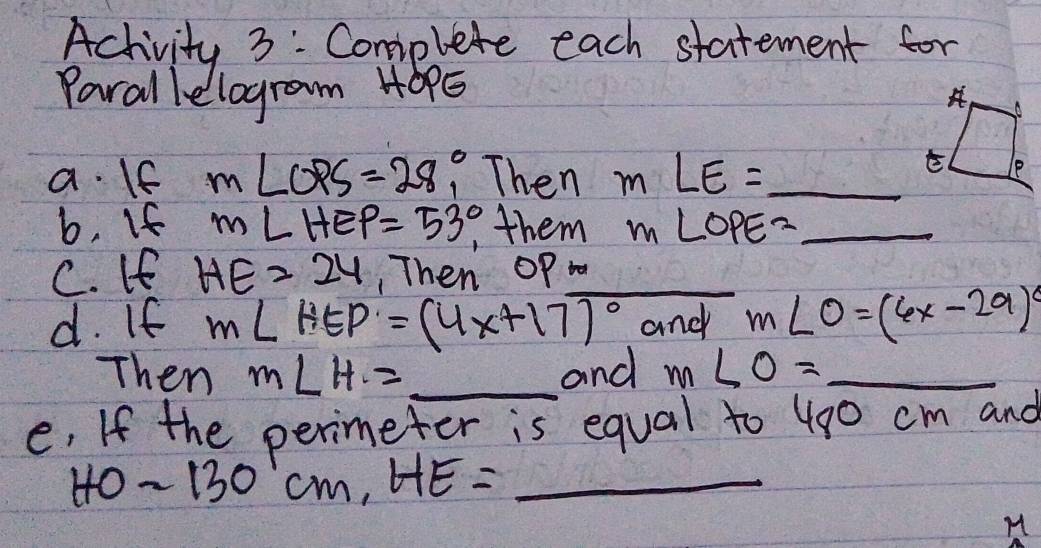 Activity 3: Complete each statement for
Parallelogram HOPE
H
E
P
a. If m∠OPS = 28°, Then m∠E = ____
b. If m∠HEP = 53°, them m∠OPE = ____
c. If HE = 24, Then OP = ____
d. If m∠HEP = (4x+17)° and m∠O = (6x-29)°
Then m∠H = ____ and m∠O = ____
e. If the perimeter is equal to cm and
HO = 130 cm, HE = ____
M